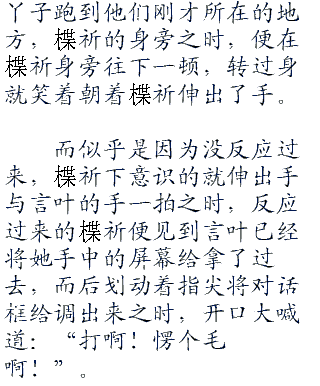 丫子跑到他们刚才所在的地
方，楪祈的身旁之时，便在
楪祈身旁往下一顿，转过身
就笑着朝着楪祈伸出了手。
而似乎是因为没反应过
来，楪祈下意识的就伸出手
与言叶的手一拍之时，反应
过来的楪祈便见到言叶已经
将她手中的屏幕给拿了过
去，而后划动着指尖将对话
框给调出来之时，开口大喊
道：“打啊！愣个毛
啊！”。